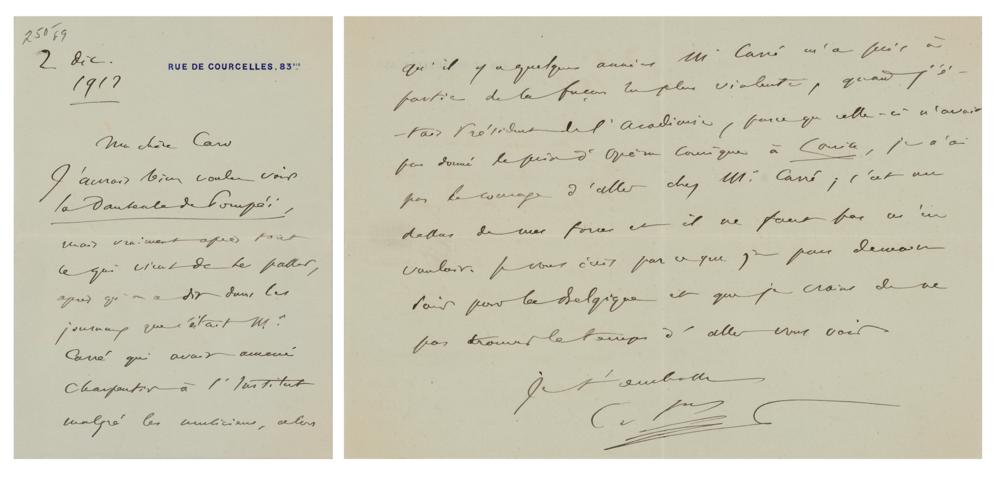 250 69
2 dic.
1912
RUE DE COURCELLES. 83 BIS
Ma chère Caro
J'aurais bien voulu voir
la Danseuse de Pompéi,
mais vraiment après tout
ce qui vient de se passer,
après qu'on a dit dans les
journaux que c'était Mr
Carré qui avait amené
Charpentier à l'Institut
malgré les musiciens, alors
qu'il y a quelques années Mr Carré m'a pris à
partie de la façon la plus violente, quand j'é-
-tais Président de l'Académie, parce que celle-ci n'avait
pas donné le prix d'Opéra Comique à Louise, je n'ai
pas le courage d'aller chez Mr. Carré ; c'est au
dessus de mes forces et il ne faut pas m'en
vouloir. Je vous écris parce que je pars demain
soir pour la Belgique et que je crains de ne
pas trouver le temps d'aller vous voir
Je t'embrasse